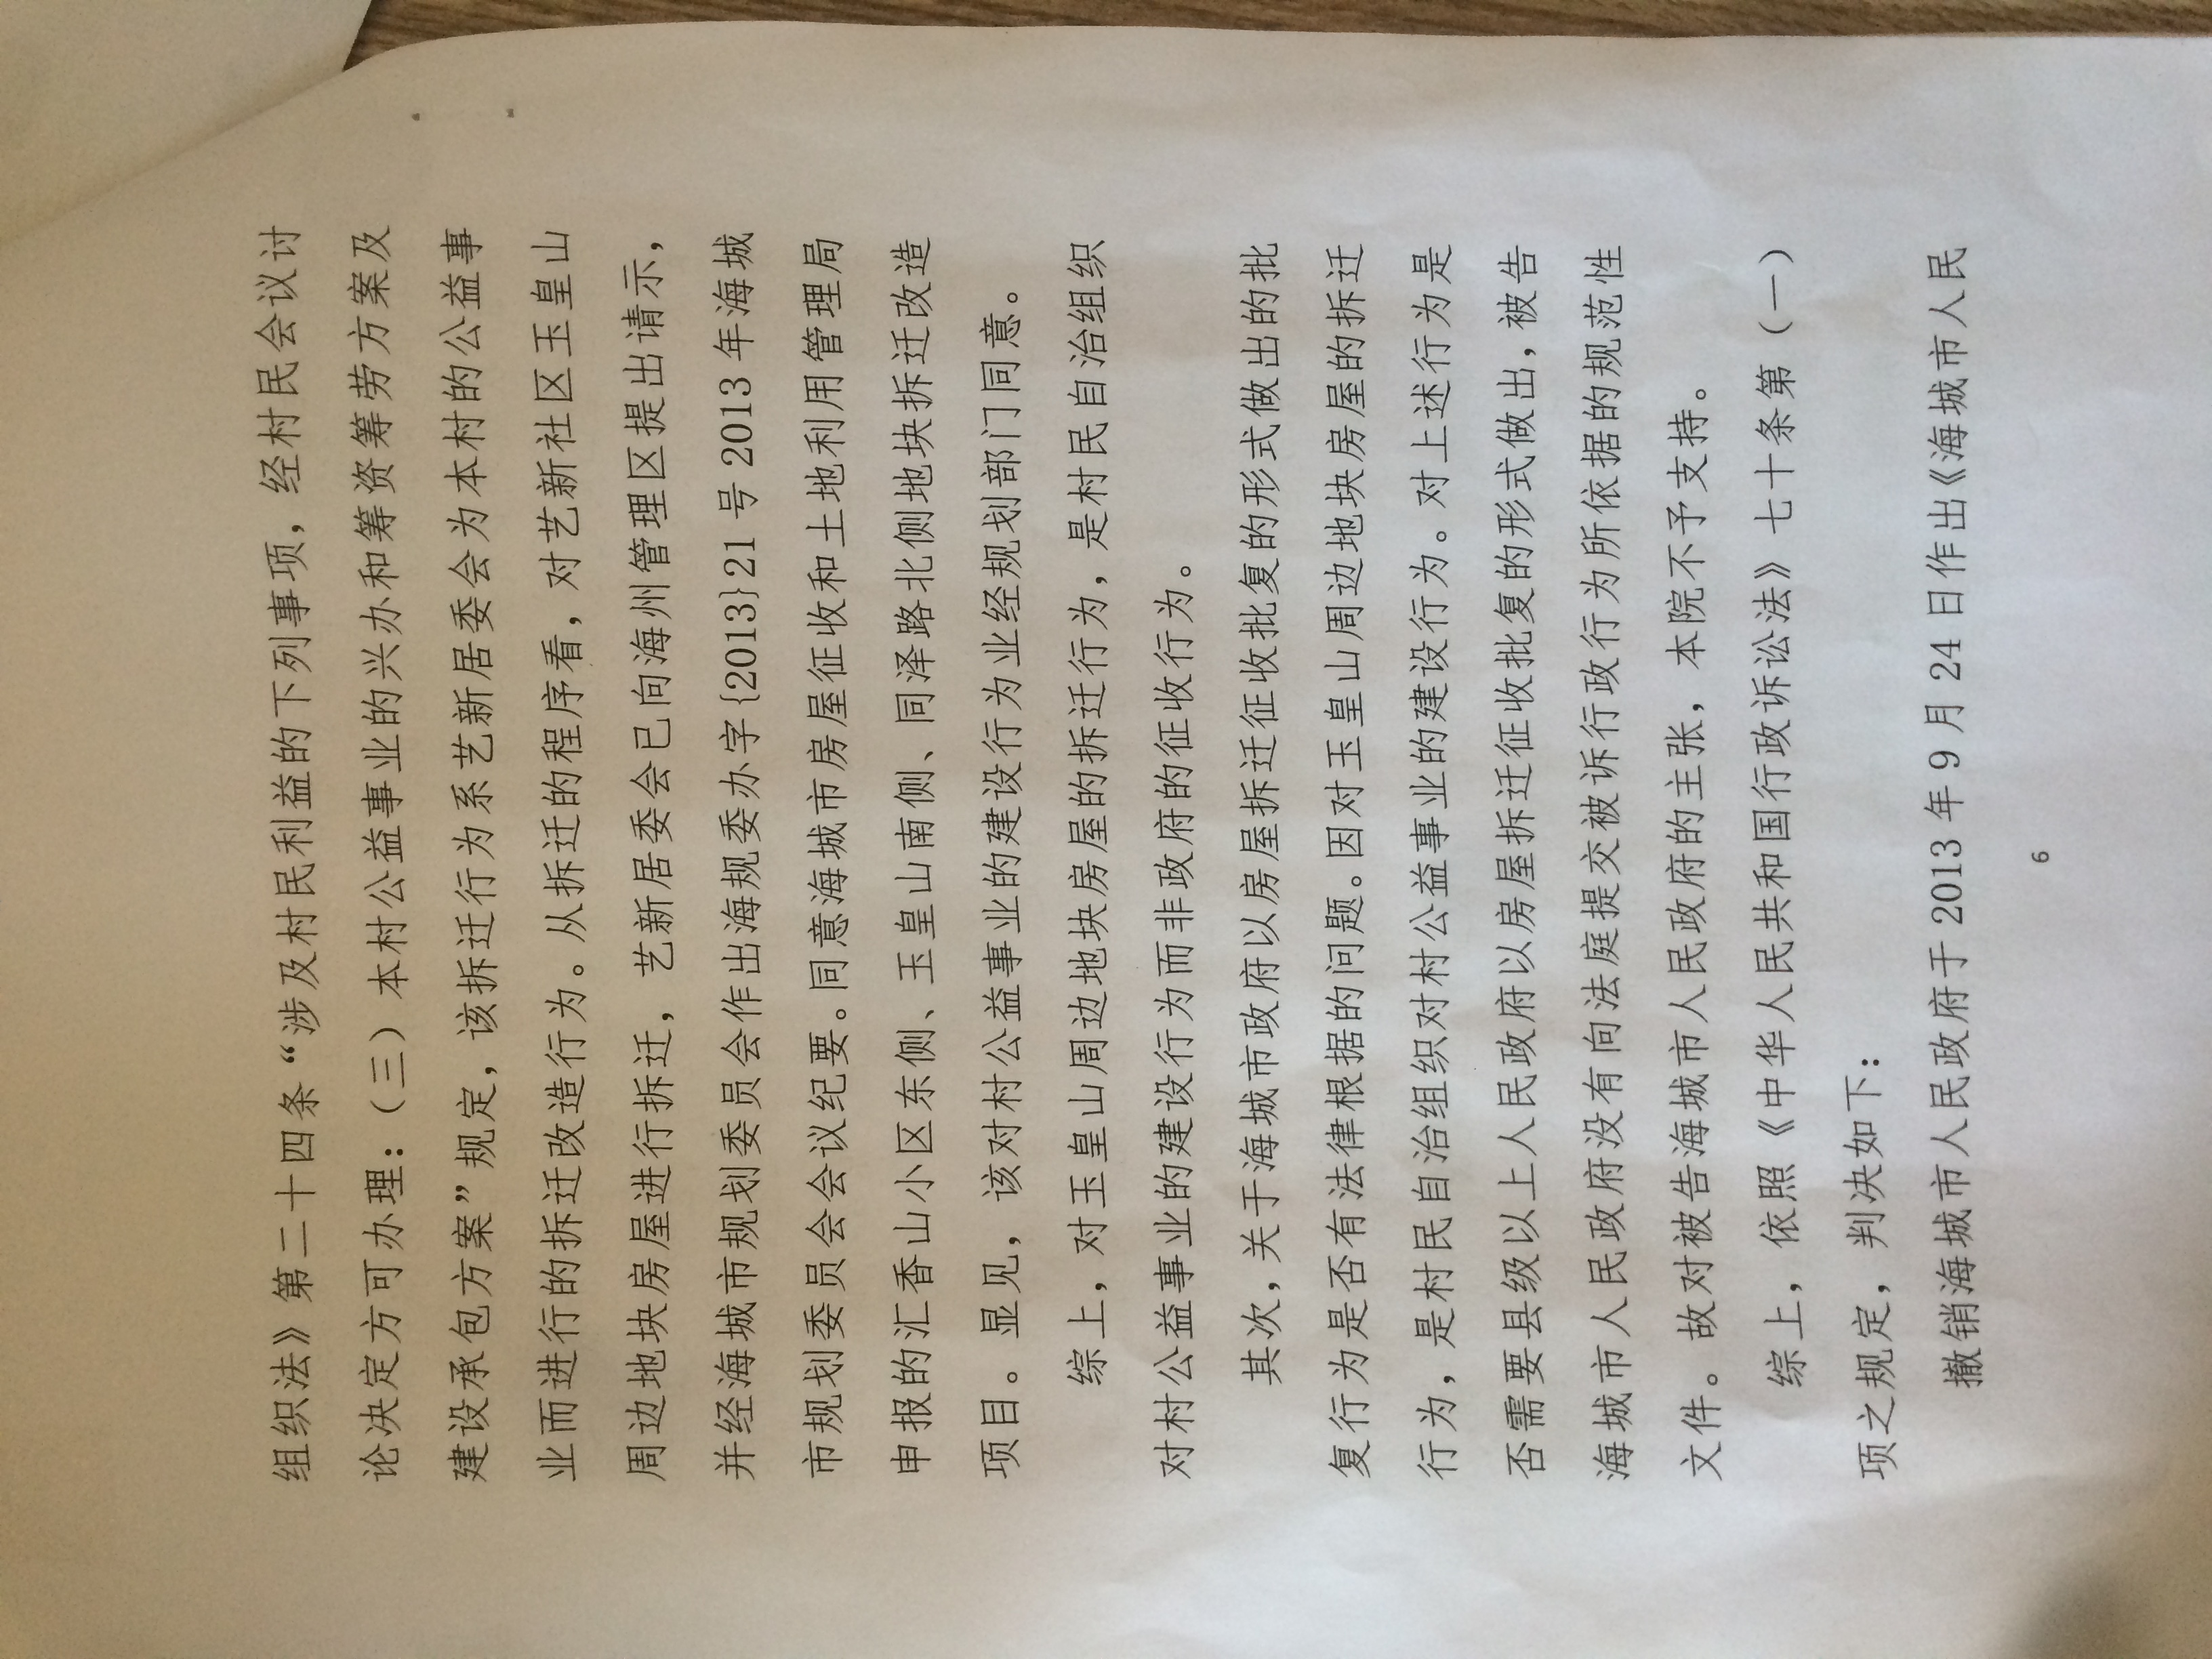 组织法》第二十四条“涉及村民利益的下列事项，经村民会议讨
论决定方可办理：（三）本村公益事业的兴办和筹资筹劳方案及
建设承包方案”规定，该拆迁行为系艺新居委会为本村的公益事
业而进行的拆迁改造行为。从拆迁的程序看，对艺新社区玉皇山
周边地块房屋进行拆迁，艺新居委会已向海州管理区提出请示，
并经海城市规划委员会作出海规委办字{2013}21号2013年海城
市规划委员会会议纪要。同意海城市房屋征收和土地利用管理局
申报的汇香山小区东侧、玉皇山南侧、同泽路北侧地块拆迁改造
项目。显见，该对村公益事业的建设行为业经规划部门同意。
综上，对玉皇山周边地块房屋的拆迁行为，是村民自治组织
对村公益事业的建设行为而非政府的征收行为。
其次，关于海城市政府以房屋拆迁征收批复的形式做出的批
复行为是否有法律根据的问题。因对玉皇山周边地块房屋的拆迁
行为，是村民自治组织对村公益事业的建设行为。对上述行为是
否需要县级以上人民政府以房屋拆迁征收批复的形式做出，被告
海城市人民政府没有向法庭提交被诉行政行为所依据的规范性
文件。故对被告海城市人民政府的主张，本院不予支持。
综上，依照《中华人民共和国行政诉讼法》七十条第（一）
项之规定，判决如下：
撤销海城市人民政府于2013年9月24日作出《海城市人民
6